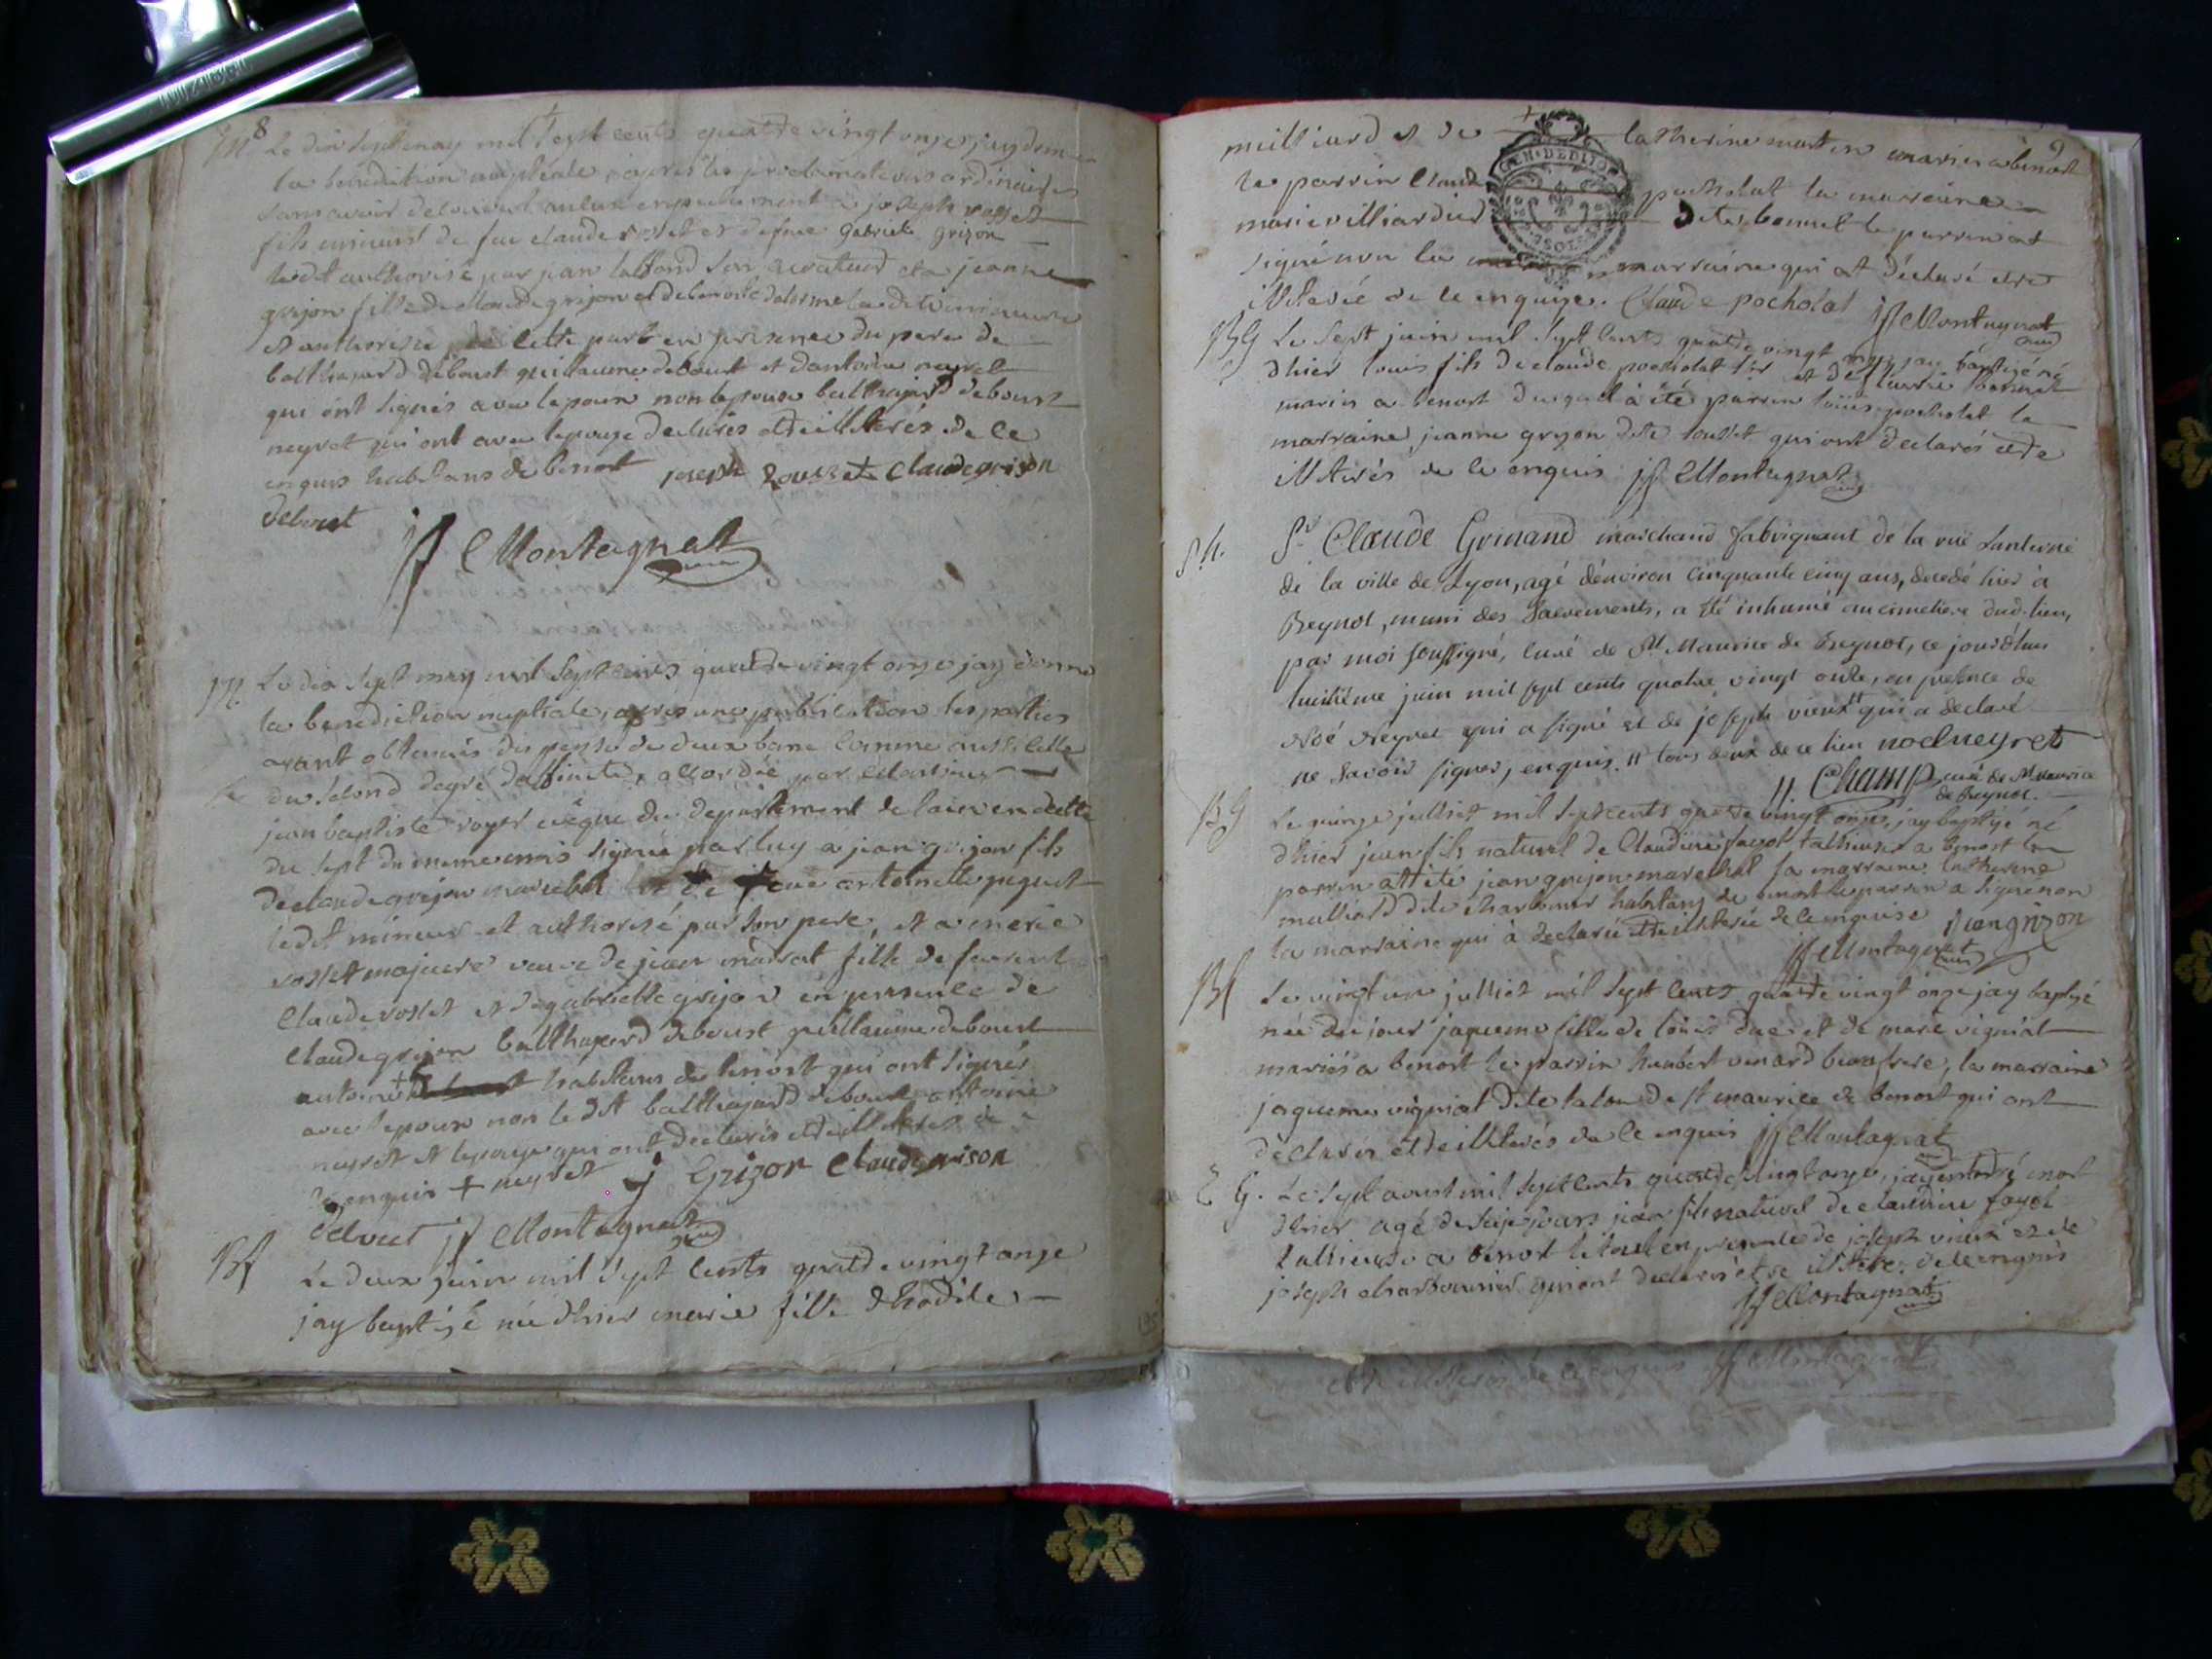 8
M. Le dix sept may mil sept cents quatre vingt onze jay donné
la bénédition nuptiale, apres les proclamations ordinaires
sans avoir découvert aucun empechement a joseph rosset
fils mineur de feu claude rosset et de feue gabriele grizon
ledit authorisé par jean laffond son curateur et a jeanne
grijon fille de claude grijon et de benoite delorme la dite mineure
et authorisée de cette part en presence du pere de
balthazard deboust guillaume deboust et dantoine neyret
qui ont signés avec lepoux non lepouse balthazard deboust
neyret qui ont avec lepouze declarés etre illiterés de ce
enquis habitans de benost joseph Rousset claude grison
deboust
jf Montagnat
M. Le dix sept may mil sept cents quatre vingt onze jay donné
la benediction nuptiale, apres une publication les parties
ayant obtenues dispense de deux bans comme aussi celle
du second degré daffinité, accordée par Monsieur
jean baptiste royer evêque du departement de lain en datte
du sept du meme mois signée par luy a jean grijon fils
de claude grijon marechal et de feue antoinette piquet
ledit mineur et authorisé par son pere, et a marie
rosset majeure veuve de jean maurat fille de
claude rosset et de gabrielle grijon en presence de
claude grijon balthazard deboust guillaume deboust
antoine + habitans de benost qui ont signés
avec lepoux non le dit balthazard deboust antoine
neyret et lepouze qui ont declarés etre illiterés de
ce enquis + neyret j Grizon claude grison
deboust jf Montagnat
BF Le deux juin mil sept cents quatre vingt onze
jay baptizé née dhier marie fille dhodile
9
milliard et de Catherine martin mariés a benost
le parrin Claude pocholat la marraine
marie villiardier dite bonnet le parrin at
signé non la marraine qui at déclaré etre
illiterée de ce enquize. Claude pocholat jf Montagnat
BG Le sept juin mil sept cents quatre vingt onze jay baptizé né
dhier louis fils de claude pocholat et de
mariés a benost duquel a été parrin louis pocholat la
marraine jeanne grijon dite rousset qui ont declarés etre
illiterés de ce enquis jf Montagnat
S.h. Sr. Claude Grinand marchand fabriquant de la ruë Lanterne
de la ville de Lyon, agé d'environ cinquante cinq ans, decedé hier à
Beynot, muni des Sacrements, a été inhumé au cimetiere dud. lieu,
par moi soussigné, curé de St. Maurice de Beynot, ce jourd'hui
huitième juin mil sept cents quatre vingt onze, en presence de
Noé Neyret qui a signé et de joseph vieux qui a declaré
ne savoir signer, enquis. tous deux de ce lieu noel neyret
Champ curé de St. Maurice
de Beynot.
BG Le quinze julliet mil sept cents quatre vingt onze, jay baptizé né
dhier jean fils naturel de Claudine fayol tallieuse a benost le
parrin at été jean grijon marechal sa marraine Catherine
milliard dite charbonier habitans de benost le parrin a signé non
la marraine qui à declarée etre illiterée de ce enquise Jean grizon
jf Montagnat
BF Le vingt un julliet mil sept cents quatre vingt onze jay baptizé
née du jour jaqueme fille de louis duc et de marie vignial
mariés a benost le parrin humbert venard beaufrere, la marraine
jaqueme vignial dite lalou de st maurice de benost qui ont
declarés etre illiterés de ce enquis jf Montagnat
E G. Le sept aoust mil sept cents quatre vingt onze, jay enterré mort
dhier agé de seize jours jean fils naturel de claudine fayol
tallieuse a benost le tout en presence de joseph vieux et de
joseph charbounier qui ont declarés etre illiterés de ce enquis
jf Montagnat